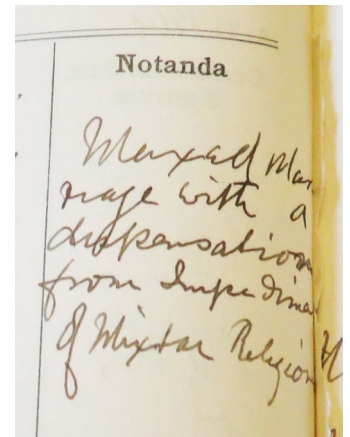 Notanda
Mixed Mar
riage with a
dispensation
from Impedime
of Mixtae Religion